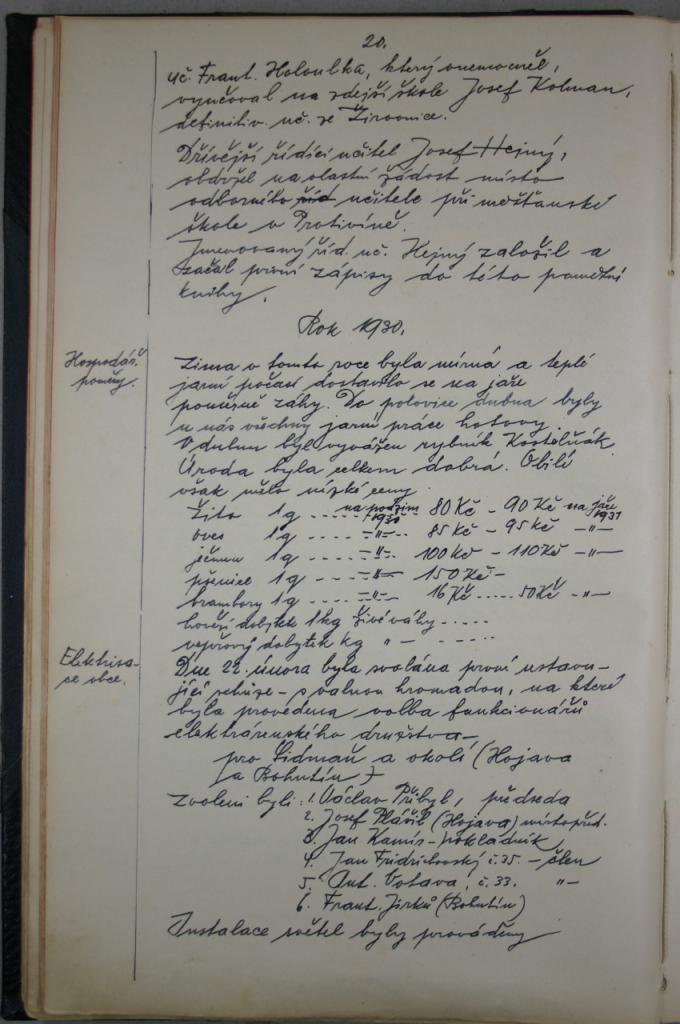 20.
uč. Frant. Holoulka, který onemocněl,
vyučoval na zdejší škole Josef Kolman,
definitiv. uč. ze Žirovnice.
Dřívější řídící učitel Josef Hejný,
obdržel na vlastní žádost místo
odborného říd učitele při měšťanské
škole v Protivíně.
Jmenovaný říd. uč. Hejný založil a
začal první zápisy do této pamětní
knihy.
Rok 1930.
Hospodář.
poměry.
Zima v tomto roce byla mírná a teplé
jarní počasí dostavilo se na jaře
poměrně záhy. Do polovice dubna byly
u nás všechny jarní práce hotovy.
V dubnu byl vyvážen rybník Kostelňák.
Úroda byla celkem dobrá. Obilí
však mělo nízké ceny.
Žito 1q .... na podzim 1930 80 Kč - 90 Kč na jaře 1931
oves 1q .... -"- .. 85 Kč - 95 Kč -"-
ječmen 1q .... -"- .. 100 Kč - 110 Kč -"-
pšenice 1q .... -"- 150 Kč -
brambory 1q .... -"- .. 16 Kč ..... 50 Kč -"-
hovězí dobytek 1 kg živé váhy .....
vepřový dobytek kg " - .....
Elektrisa-
ce obce.
Dne 22. února byla svolána první ustavu-
jící schůze - s valnou hromadou, na které
byla provedena volba funkcionářů
elektrárenského družstva -
pro Lidmaň a okolí (Hojava
a Bohutín)
Zvoleni byli: 1. Václav Přibyl, předseda
2. Josef Plášil (Hojava) místopřed.
3. Jan Kamis - pokladník
4. Jan Fridrichovský č. 35. - člen
5. Ant. Votava, č. 33. "-
6. Frant. Jirků (Bohutín)
Instalace světel byly prováděny